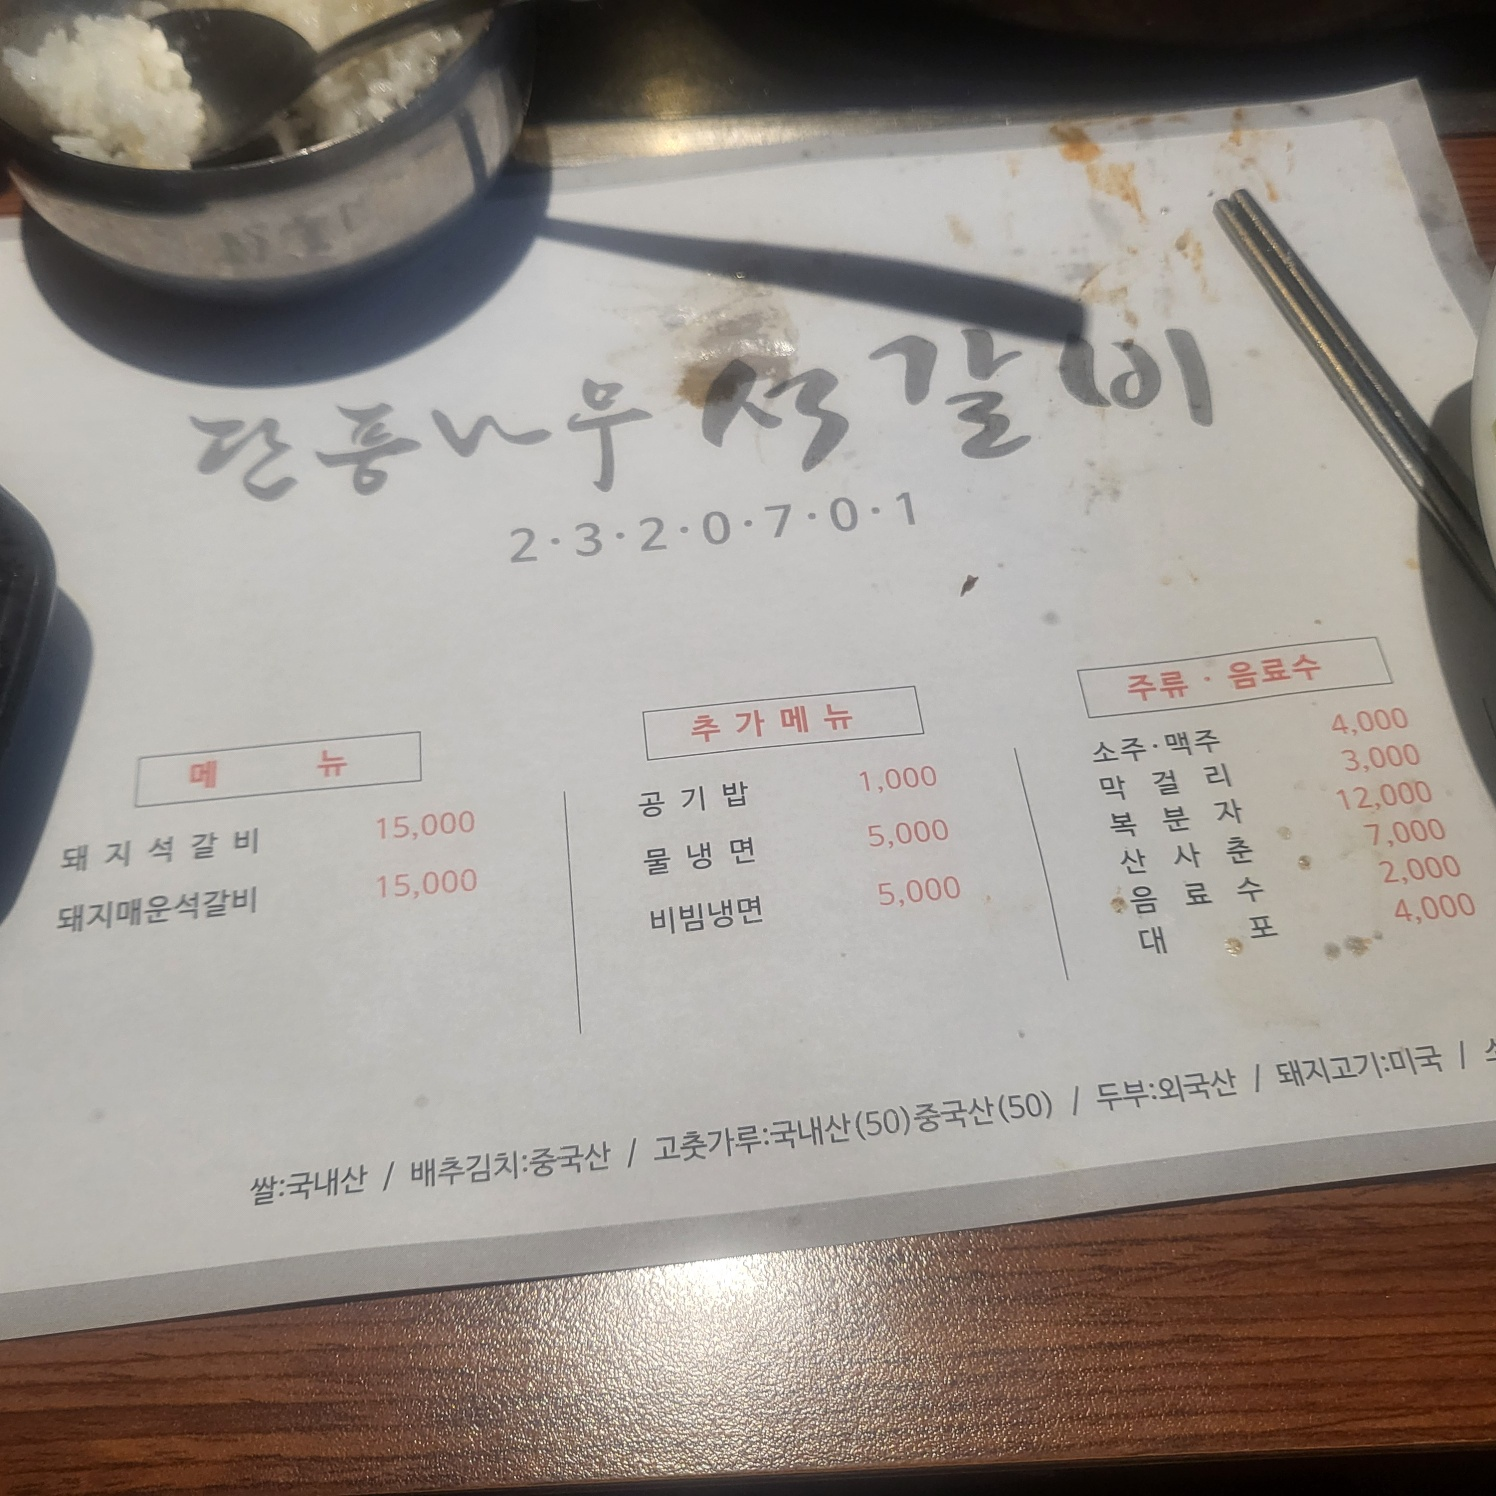 단풍나무 석갈비
2·3·2·0·7·0·1
메 뉴
돼지석갈비 15,000
돼지매운석갈비 15,000
추가메뉴
공기밥 1,000
물냉면 5,000
비빔냉면 5,000
주류·음료수
소주·맥주 4,000
막걸리 3,000
복분자 12,000
산사춘 7,000
음료수 2,000
대포 4,000
쌀:국내산 / 배추김치:중국산 / 고춧가루:국내산(50)중국산(50) / 두부:외국산 / 돼지고기:미국 /